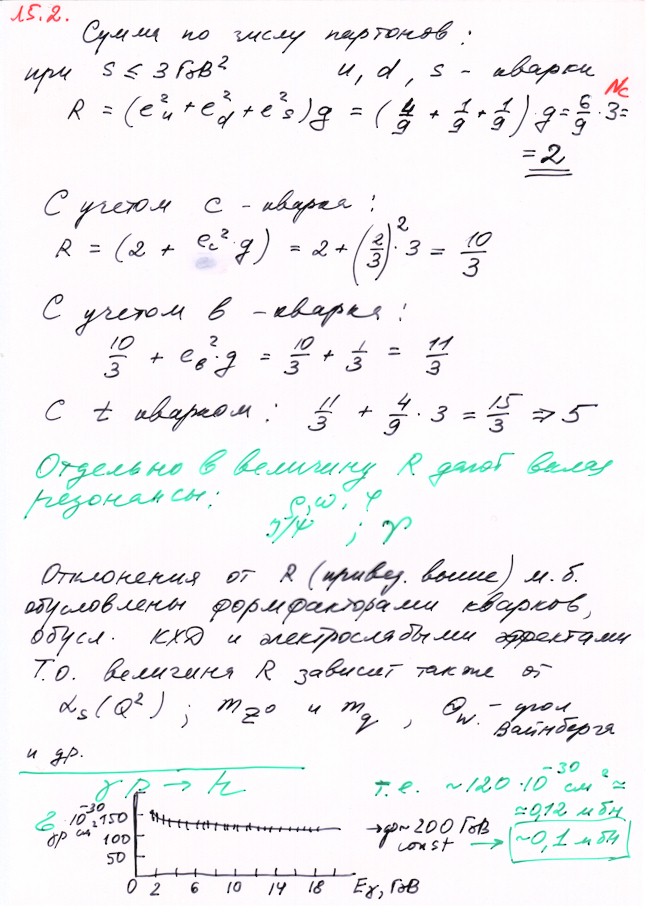 15.2.
Сумма по числу партонов:
при s ≤ 3 ГэВ² u, d, s - кварки
R = (e²u + e²d + e²s)g = (4/9 + 1/9 + 1/9)·g = 6/9·3 = Nc
= 2
С учетом c - кварка:
R = (2 + ec²·g) = 2 + (2/3)²·3 = 10/3
С учетом в - кварка:
10/3 + eв²·g = 10/3 + 1/3 = 11/3
С t кварком: 11/3 + 4/9·3 = 15/3 ⇒ 5
Отдельно в величину R дают вклад
резонансы: ρ, ω, φ
J/ψ ; γ
Отклонения от R (привед. выше) м.б.
обусловлены формфакторами кварков,
обусл. КХД и электрослабыми эффектами
Т.о. величина R зависит также от
αs(Q²) ; mZ⁰ и mq , θw. - угол
Вайнберга
и др.
γp → h
т.е. ~120·10⁻³⁰ см² ≈
≈ 0,12 мбн
~0,1 мбн
→ до ~200 ГэВ
const →
σγp 10⁻³⁰ см²
150
100
50
0 2 6 10 14 18 Eγ, ГэВ